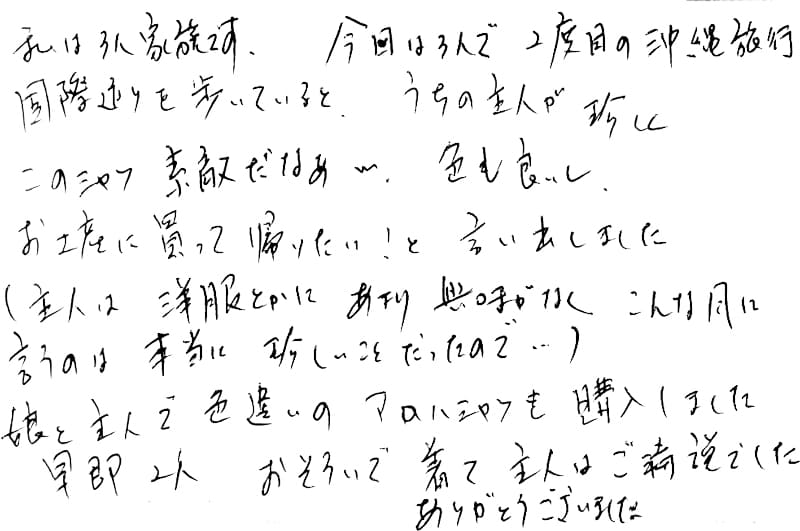 私は3人家族です。 今回は3人で2度目の沖縄旅行
国際通りを歩いていると、 うちの主人が 珍しく
このシャツ 素敵だなあ…、 色も良いし、
お土産に買って帰りたい!と 言い出しました
(主人は 洋服とかに あまり 興味がなく こんな風に
言うのは 本当に 珍しいことだったので…)
娘と主人で 色違いの アロハシャツを 購入しました
早即 2人 おそろいで 着て 主人はご満悦でした
ありがとうございました